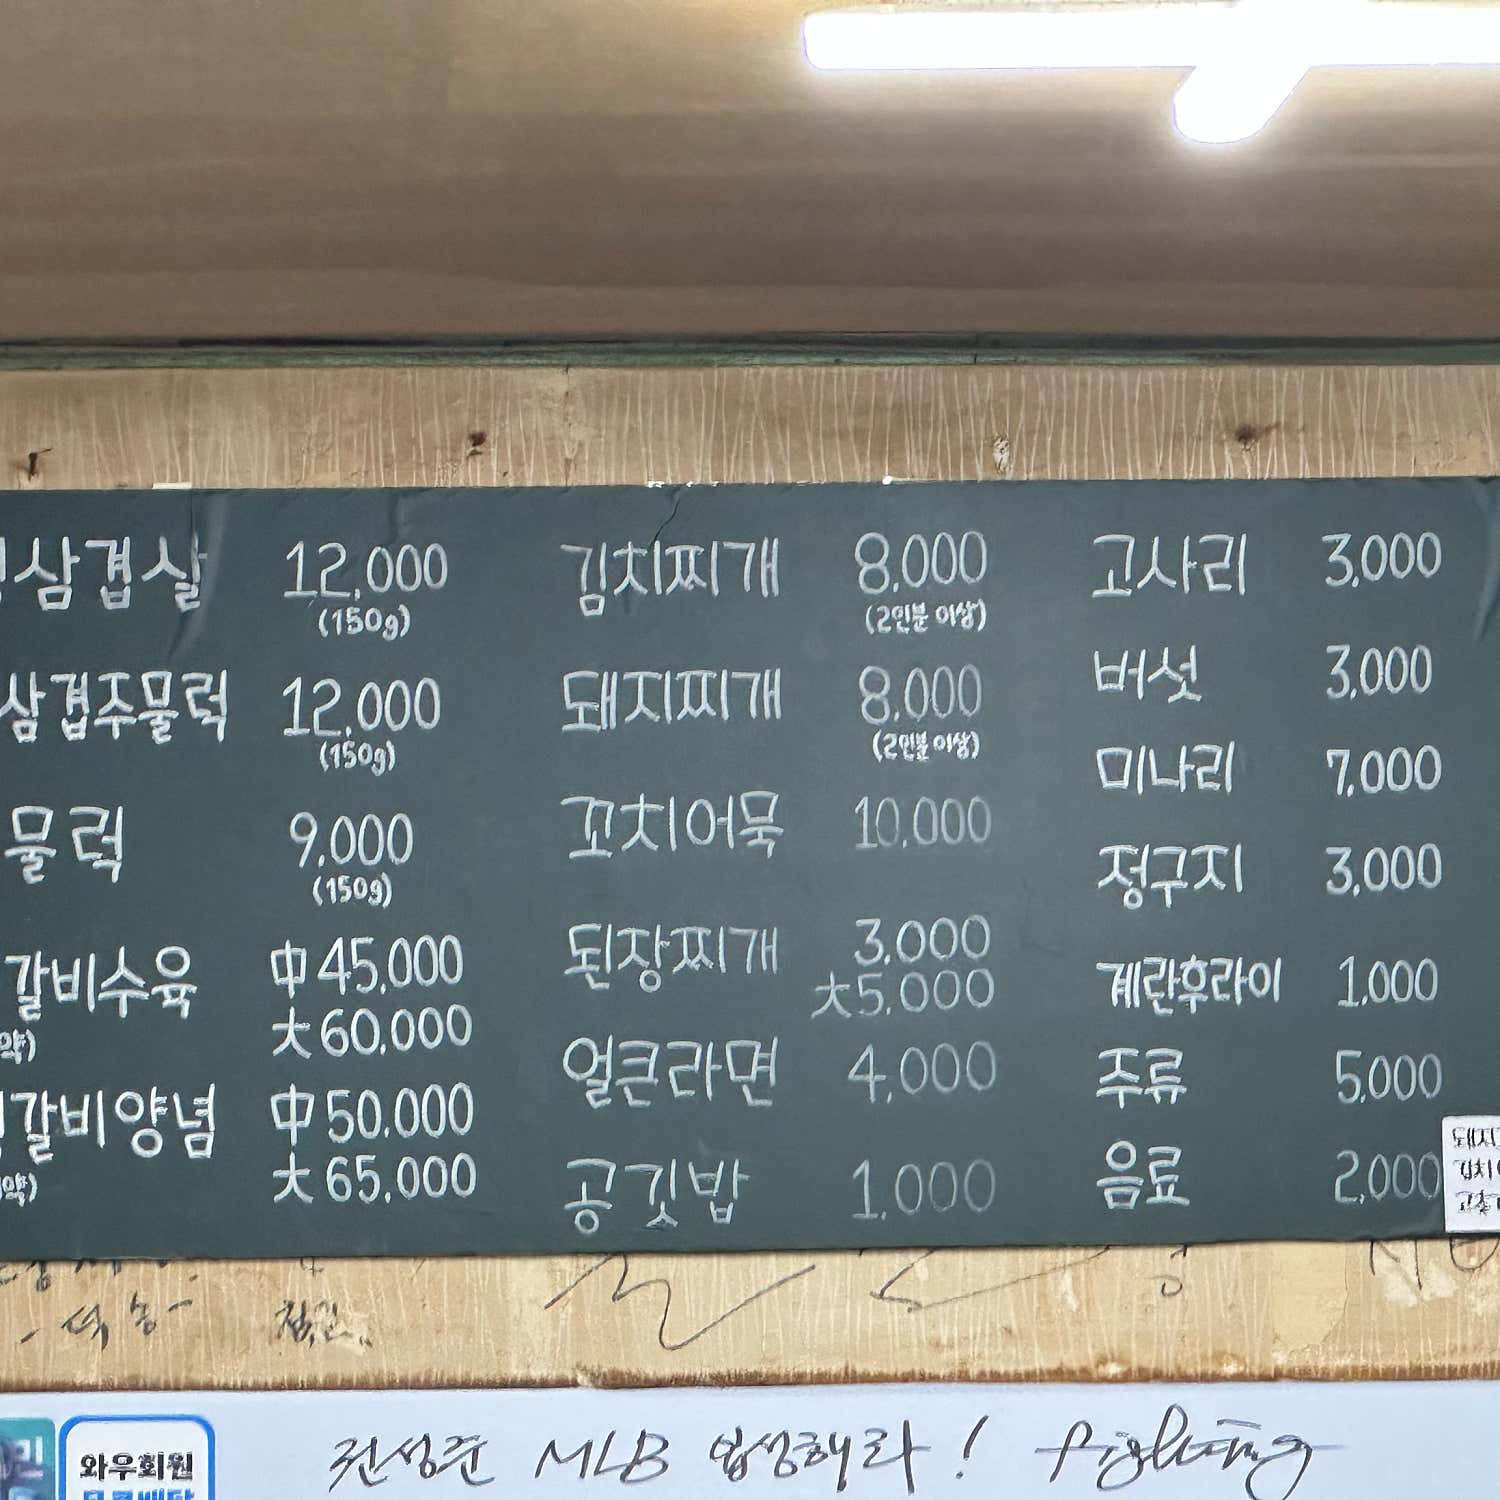 삼겹살 12,000
(150g)
삼겹주물럭 12,000
(150g)
물럭 9,000
(150g)
갈비수육 中 45,000
大 60,000
갈비양념 中 50,000
大 65,000
김치찌개 8,000
(2인분 이상)
돼지찌개 8,000
(2인분 이상)
꼬치어묵 10,000
된장찌개 3,000
大 5,000
얼큰라면 4,000
공깃밥 1,000
고사리 3,000
버섯 3,000
미나리 7,000
정구지 3,000
계란후라이 1,000
주류 5,000
음료 2,000
와우회원
MLB 입성해라! fighting